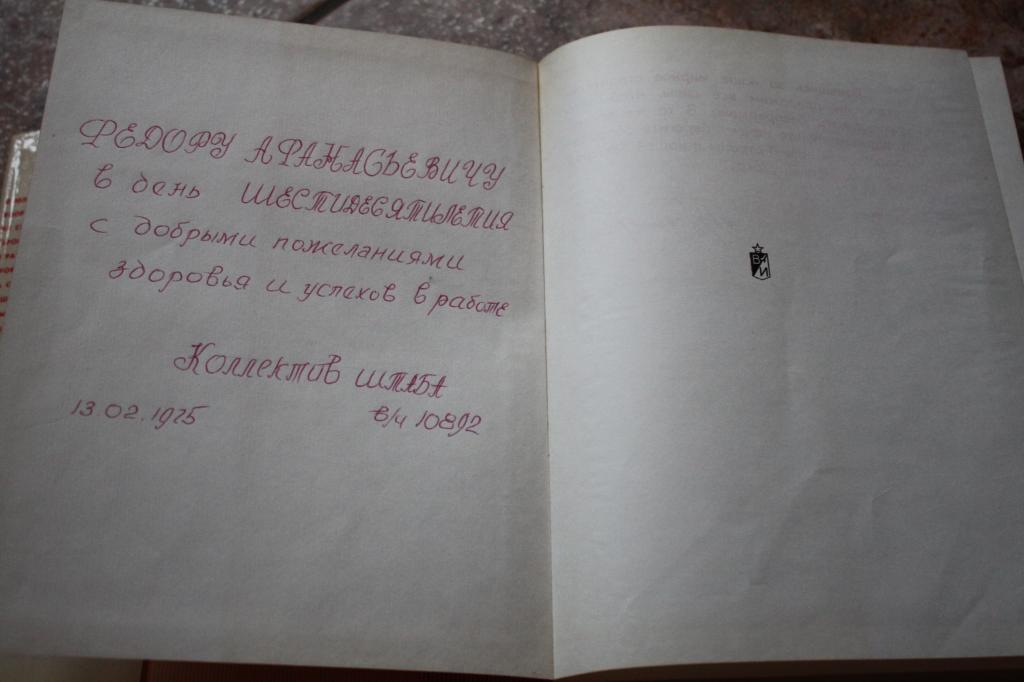 ФЕДОРУ АФАНАСЬЕВИЧУ
в день ШЕСТИДЕСЯТИЛЕТИЯ
с добрыми пожеланиями
здоровья и успехов в работе
Коллектив ШТАБА
13.02.1975 в/ч 10892
В И